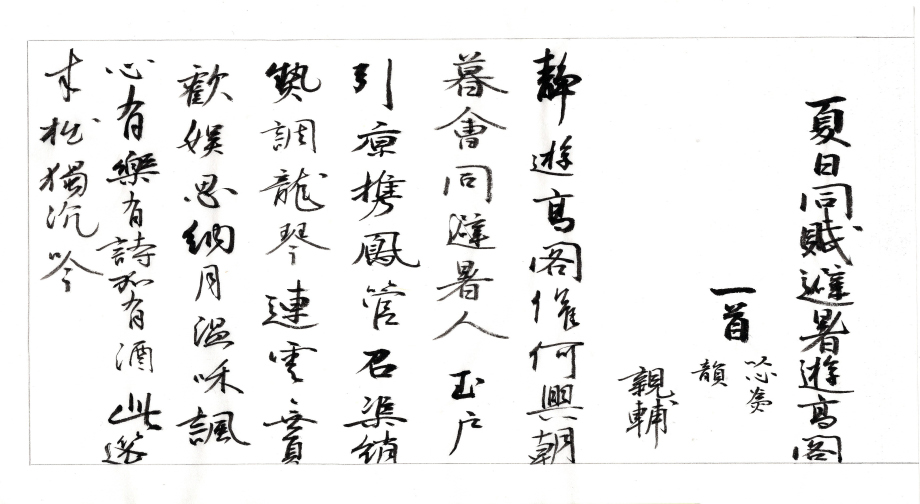 夏日同賦避暑遊高閣
一首
以心為
韻
親輔
靜遊高閣催何興朝
暮會同避暑人 玉戸
引凉携鳳管石渠銷
熱調龍琴連雲
歓娯思納月温味諷
心有樂有詩加有酒此筵
才拙獨沉吟